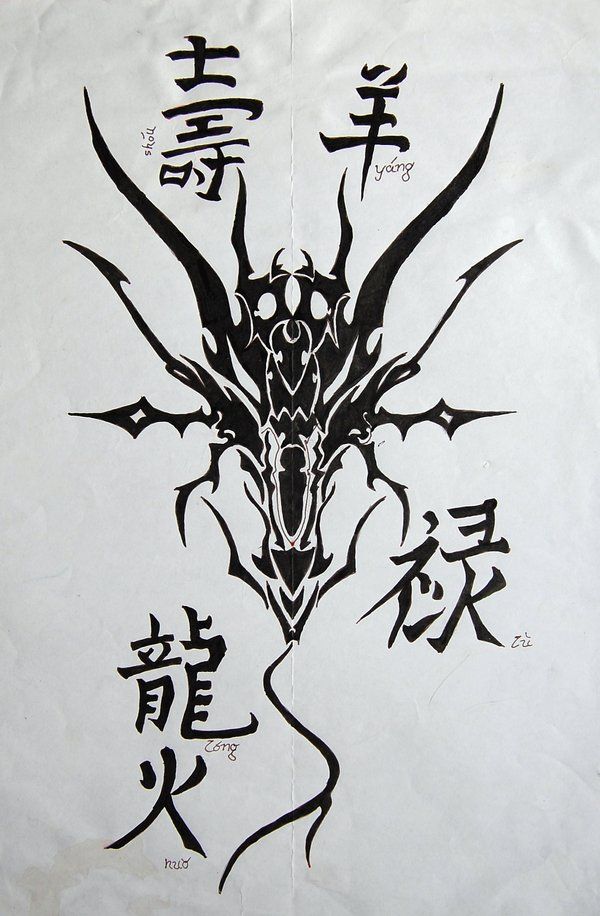 壽
shòu
羊
yáng
禄
lù
龍
lóng
火
huò